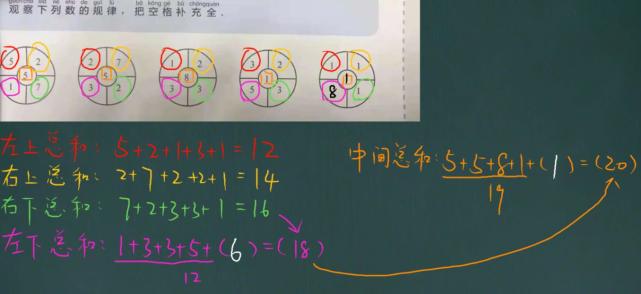 guānchá xià liè shù de guī lǜ bǎ kòng gé bǔ chōngquán
观察下列数的规律，把空格补充全.
5 2 5 1 7
2 7 5 3 2
1 2 8 3 3
3 2 1 5 3
1 1 1 8 1
左上总和: 5+2+1+3+1=12
右上总和: 2+7+2+2+1=14
右下总和: 7+2+3+3+1=16
左下总和: 1+3+3+5+(6)=(18)
12
中间总和: 5+5+8+1+(1)=(20)
19